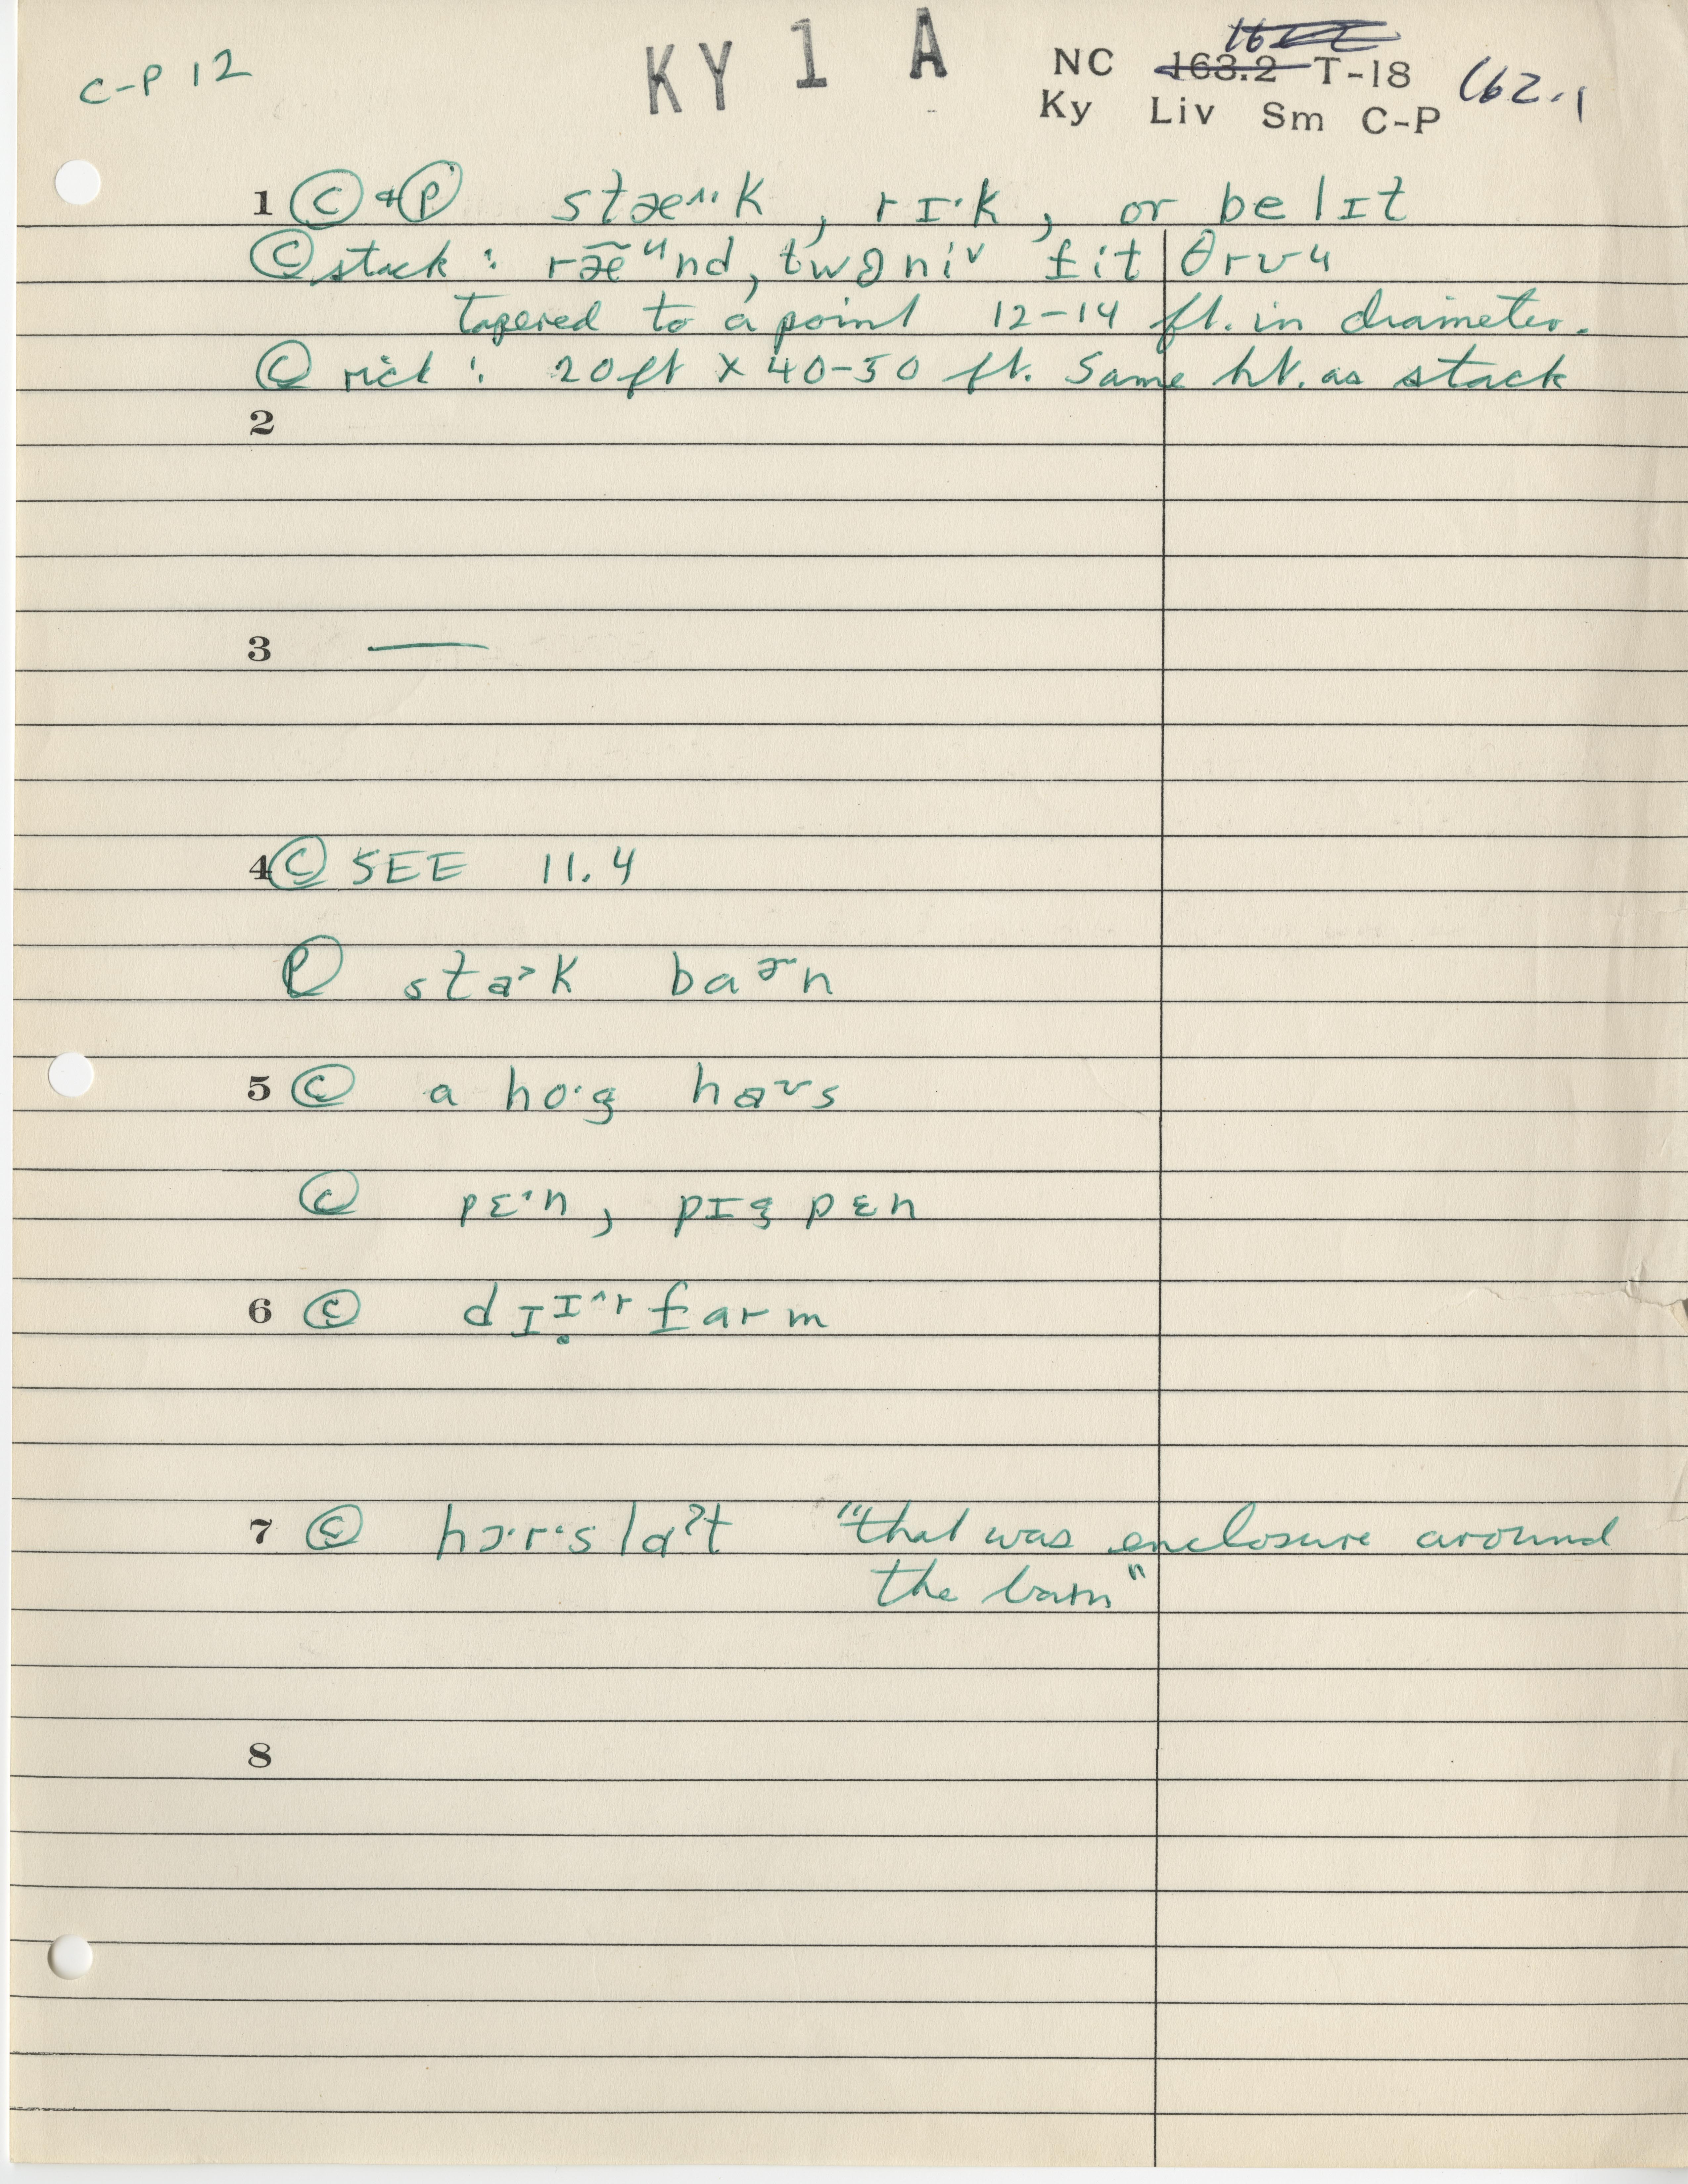 C-P 12
KY 1 A
NC 163.2 T-18 162.1
Ky Liv Sm C-P
1 Ⓒ + Ⓟ stæ^··k, rɪ·k, or be lɪt
Ⓒ stack : ræ̃ᵘnd, twəniᵛ fit θrʊu
Tapered to a point 12-14 ft. in diameter.
Ⓒ rick : 20 ft X 40-50 ft. Same ht. as stack
2
3 —
4 Ⓒ SEE 11.4
Ⓟ sta˃k baɚn
5 Ⓒ a ho·g haʊs
Ⓒ pɛ·n, pɪg pɛn
6 Ⓒ dɪɪ̣^r farm
7 Ⓒ hɔ·r·s lɑˀt "that was enclosure around
the barn"
8